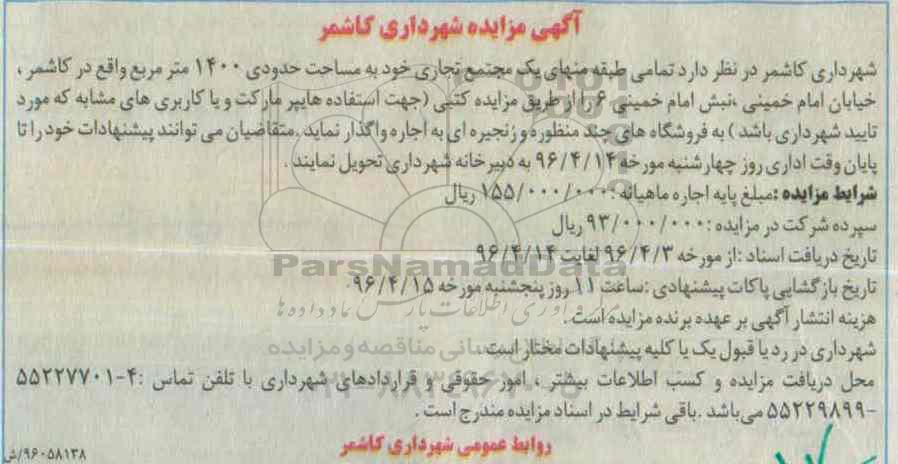 آگهی مزایده شهرداری کاشمر
شهرداری کاشمر در نظر دارد تمامی طبقه منهای یک مجتمع تجاری خود به مساحت حدودی ۱۴۰۰ متر مربع واقع در کاشمر ،
خیابان امام خمینی ،نبش امام خمینی ۶ را از طریق مزایده کتبی (جهت استفاده هایپر مارکت و یا کاربری های مشابه که مورد
تایید شهرداری باشد ) به فروشگاه های چند منظوره و زنجیره ای به اجاره واگذار نماید .متقاضیان می توانند پیشنهادات خود را تا
پایان وقت اداری روز چهارشنبه مورخه ۹۶/۴/۱۴ به دبیرخانه شهرداری تحویل نمایند .
شرایط مزایده :مبلغ پایه اجاره ماهیانه :۱۵۵/۰۰۰/۰۰۰ ریال
سپرده شرکت در مزایده :۹۳/۰۰۰/۰۰۰ ریال
تاریخ دریافت اسناد :از مورخه ۹۶/۴/۳ لغایت ۹۶/۴/۱۴
ParsNamadData
تاریخ بازگشایی پاکات پیشنهادی :ساعت ۱۱ روز پنجشنبه مورخه ۹۶/۴/۱۵
هزینه انتشار آگهی بر عهده برنده مزایده است .
شهرداری در رد یا قبول یک یا کلیه پیشنهادات مختار است .
محل دریافت مزایده و کسب اطلاعات بیشتر ، امور حقوقی و قراردادهای شهرداری با تلفن تماس :۴-۵۵۲۲۷۷۰۱
-۵۵۲۲۹۸۹۹ می باشد .باقی شرایط در اسناد مزایده مندرج است .
روابط عمومی شهرداری کاشمر
۹۶۰۵۸۱۳۸/ش